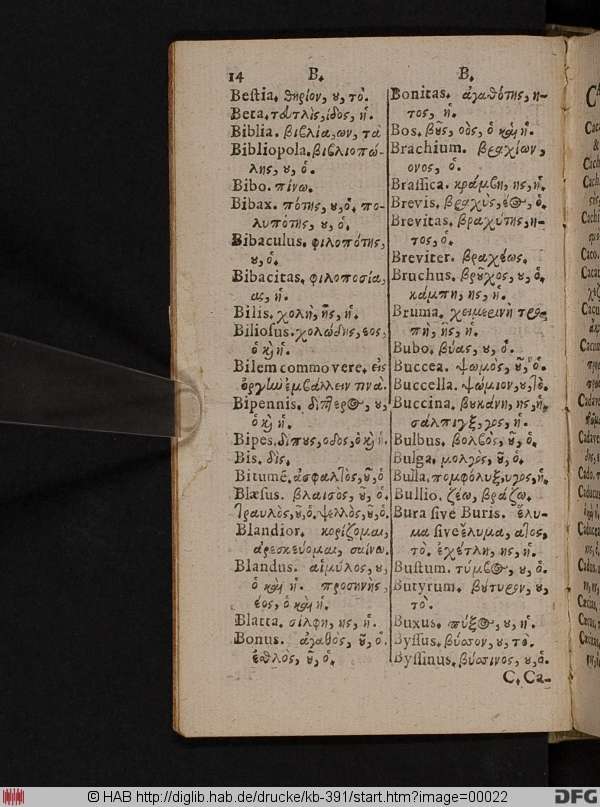 14 B. B.
Bestia. θηρίον, ου, τὸ.
Beta. τευτλὶς, ίδος, ἡ.
Biblia. βιβλία, ων, τὰ
Bibliopola. βιβλιοπώ-
λης, ου, ὁ.
Bibo. πίνω.
Bibax. πότης, ου, ὁ. πο-
λυπότης, ου, ὁ.
Bibaculus. φιλοπότης,
ου, ὁ.
Bibacitas. φιλοποσία,
ας, ἡ.
Bilis. χολὴ, ῆς, ἡ.
Biliosus. χολώδης, εος,
ὁ καὶ ἡ.
Bilem commovere. εἰς
ὀργὴν ἐμβάλλειν τινὰ.
Bipennis. ου,
ὁ καὶ ἡ.
Bipes. δίπους, οδος, ὁ καὶ ἡ
Bis. δὶς.
Bitumẽ. ἀσφαλτὸς, οῦ, ὁ
Blæsus. βλαισὸς, οῦ, ὁ.
τραυλὸς, οῦ, ὁ. ψελλὸς, οῦ, ὁ.
Blandior. κορίζομαι,
ἀρεσκεύομαι, σαίνω.
Blandus. αἱμύλος, ου,
ὁ καὶ ἡ. προσηνὴς,
έος, ὁ καὶ ἡ.
Blatta. σίλφη, ης, ἡ.
Bonus. ἀγαθὸς, οῦ, ὁ.
ἐσθλὸς, οῦ, ὁ.
Bonitas. ἀγαθότης, η-
τος, ἡ.
Bos. βοῦς, οὸς, ὁ καὶ ἡ.
Brachium. βραχίων,
ονος, ὁ.
Brassica. κράμβη, ης, ἡ.
Brevis. βραχὺς, έος, ὁ.
Brevitas. βραχύτης, η-
τος, ὁ.
Breviter. βραχέως.
Bruchus. βροῦχος, ου, ὁ.
κάμπη, ης, ἡ.
Bruma. χειμερινὴ τρο-
πὴ, ῆς, ἡ.
Bubo. βύας, ου, ὁ.
Buccea. ψωμὸς, οῦ, ὁ.
Buccella. ψώμιον, ου, τὸ.
Buccina. βυκάνη, ης, ἡ.
σάλπιγξ, γγος, ἡ.
Bulbus. βολβὸς, οῦ, ὁ.
Bulga. μολγὸς, οῦ, ὁ.
Bulla. πομφόλυξ, υγος, ἡ.
Bullio. ζέω, βράζω.
Bura sive Buris. ἔλυ-
μα sive ἔλυμα, ατος,
τὸ. ἐχέτλη, ης, ἡ.
Bustum. τύμβος, ου, ὁ.
Butyrum. βούτυρον, ου,
τὸ.
Buxus. πύξος, ου, ἡ.
Byssus. βύσσον, ου, τὸ.
Byssinus. βύσσινος, ου, ὁ.
C. Ca-
© HAB http://diglib.hab.de/drucke/kb-391/start.htm?image=00022
DFG